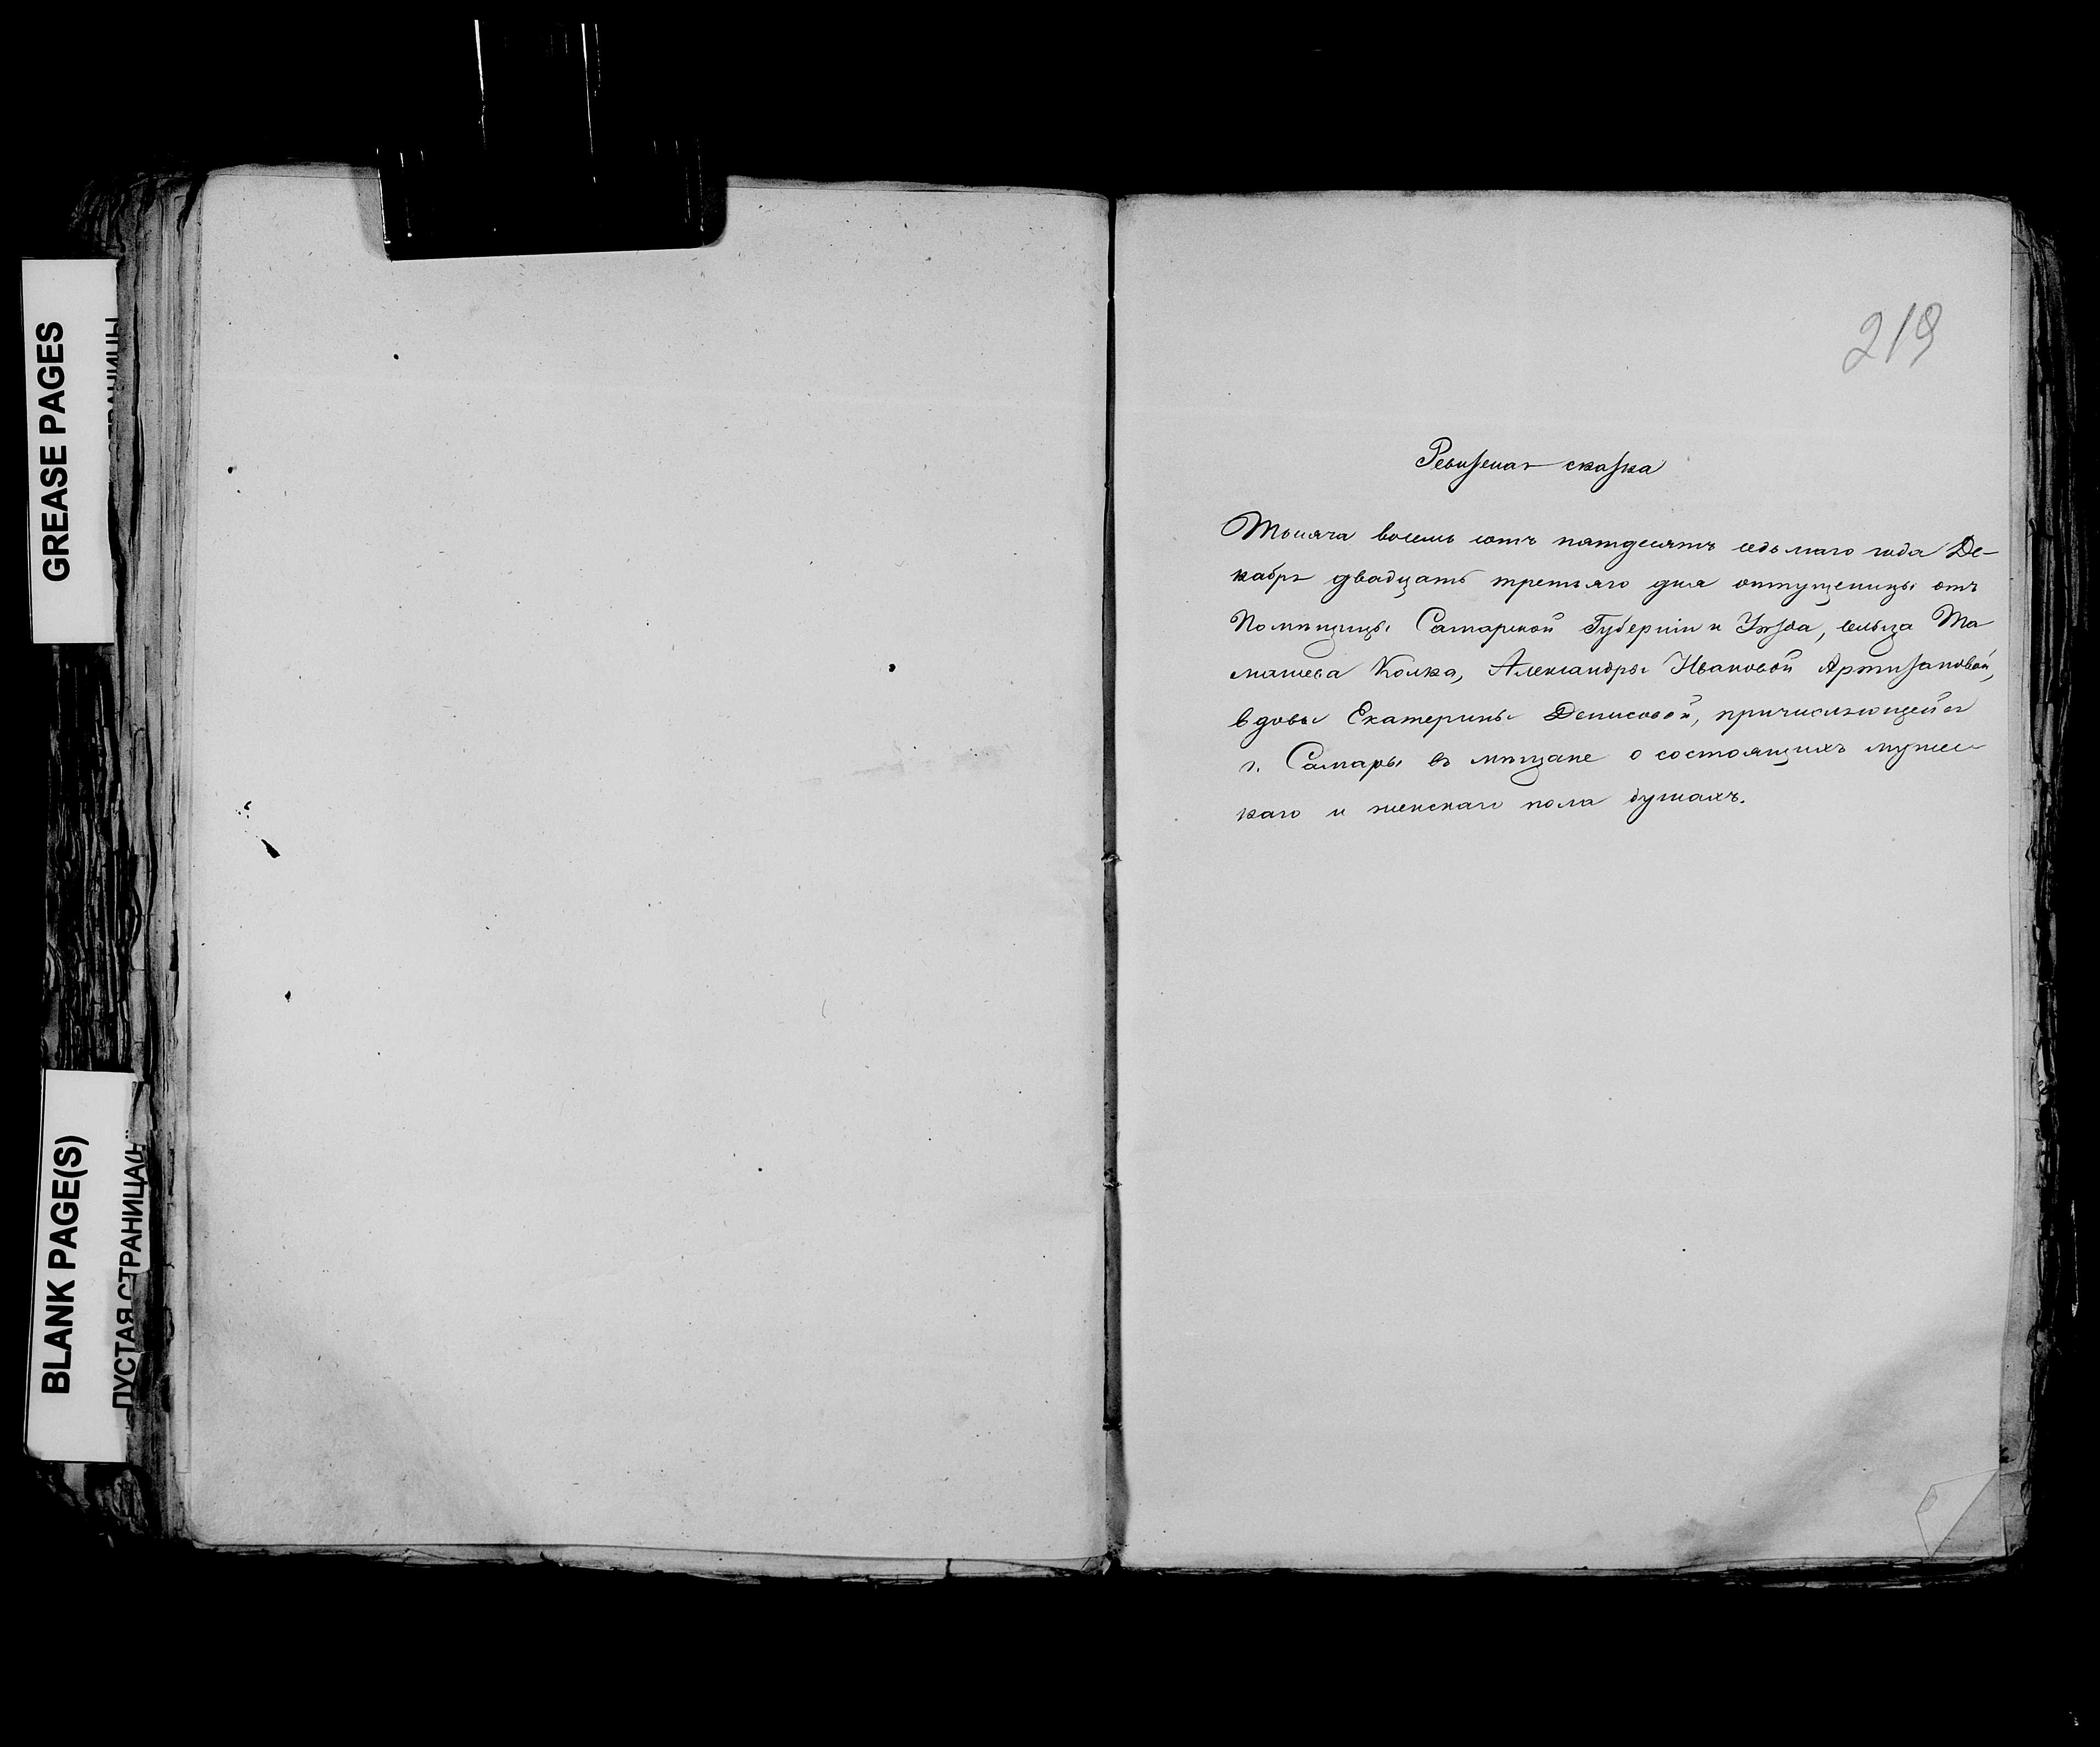 GREASE PAGES
BLANK PAGE(S)
ПУСТАЯ СТРАНИЦА
219
Ревизская сказка
Тысяча восемь сотъ пятдесятъ седьмаго года Де-
кабря двадцать третьяго дня отпущеницы отъ
Помѣщицы Самарской Губерніи и Уѣзда, сельца Та
машева Колка, Александры Ивановой
вдовы Екатерины Денисовой, причисляющейся
г. Самары въ мѣщане о состоящихъ мужес
каго и женскаго пола душахъ.